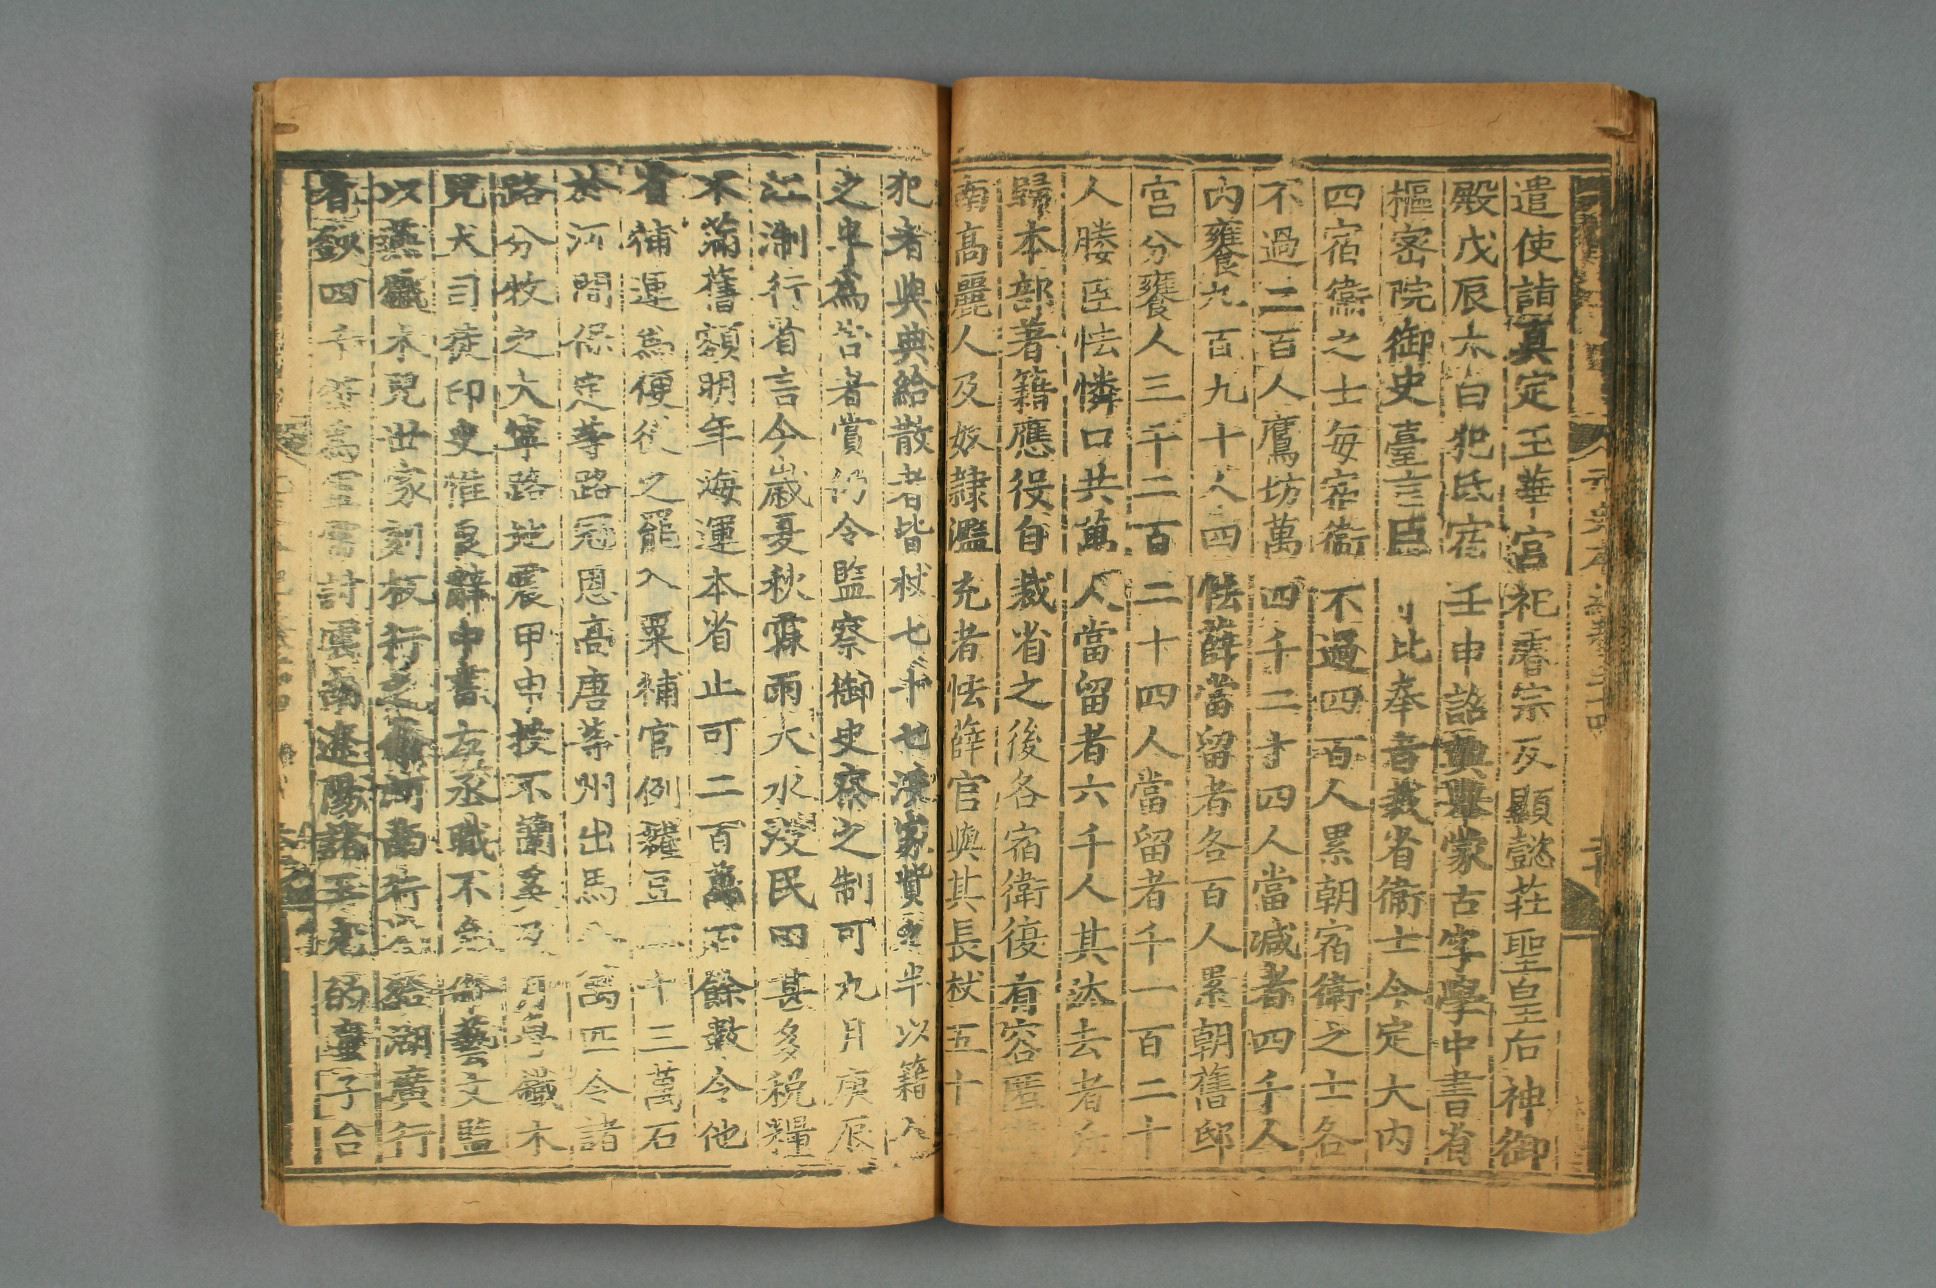 遣使詣真定玉華宮祀睿宗及顯懿莊聖皇后神御
殿戊辰太白犯氐宿壬申詔興舉蒙古字學中書省
樞密院御史臺言臣比奉旨裁省衛士今定大內
四宿衛之士每宿衛不過四百人累朝宿衛之士各
不過二百人鷹坊萬四千二十四人當减者四千人
內饔九百九十人四怯薛當留者各百人累朝舊邸
宮分饔人三千二百二十四人當留者千一百二十
人媵臣怯憐口共萬人當留者六千人其汰去者斥
歸本部著籍應役自裁省之後各宿衛復有容匿
南高麗人及奴隸濫充者怯薛官與其長杖五十
犯者與典給散者皆杖七十七沒家貲之半以籍入
之半爲告者賞仍令監察御史察之制可九月庚辰
江浙行省言今歲夏秋霖雨大水没民田甚多稅糧
不滿舊額明年海運本省止可二百萬石餘數令他
省補運爲便從之罷入粟補官例糴豆二十三萬石
於河間保定等路冠恩高唐等州出馬八萬匹令諸
路分牧之大寧路地震甲申授不蘭奚及月魯鐵木
兒大司徒印史惟良辭中書左丞職不允命藝文監
以燕鐵木兒世家刻板行之賑河南行省給湖廣行
省鈔四千錠爲雲需討雲南遼陽諸王老的蠻子台
元史本紀卷三十四